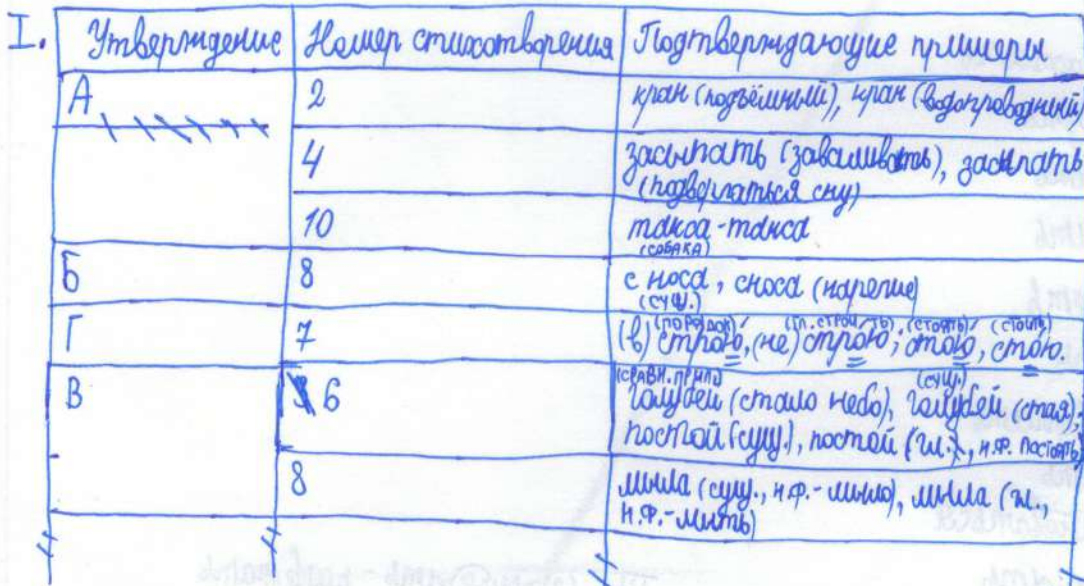 I.
Утверждение Номер стихотворения Подтверждающие примеры
А 2 кран (подъёмный), кран (водопроводный)
4 засыпать (заваливать), засыпать
(подвергаться сну)
10 такса - такса
(СОБАКА)
Б 8 с носа, сноса (наречие)
(СУЩ.)
(ПОРЯДОК) (ГЛ. СТРОИТЬ) (СТОЯТЬ) (СТОИТЬ)
Г 7 (в) строю, (не) строю; стою, стою.
(СРАВН. ПРИЛ.) (СУЩ.)
В 6 голубей (стало небо), голубей (стая);
постой (сущ.), постой (гл., Н.Ф. ПОСТОЯТЬ)
8 мыла (сущ., н.ф. - мыло), мыла (гл.,
н.ф. - мыть)